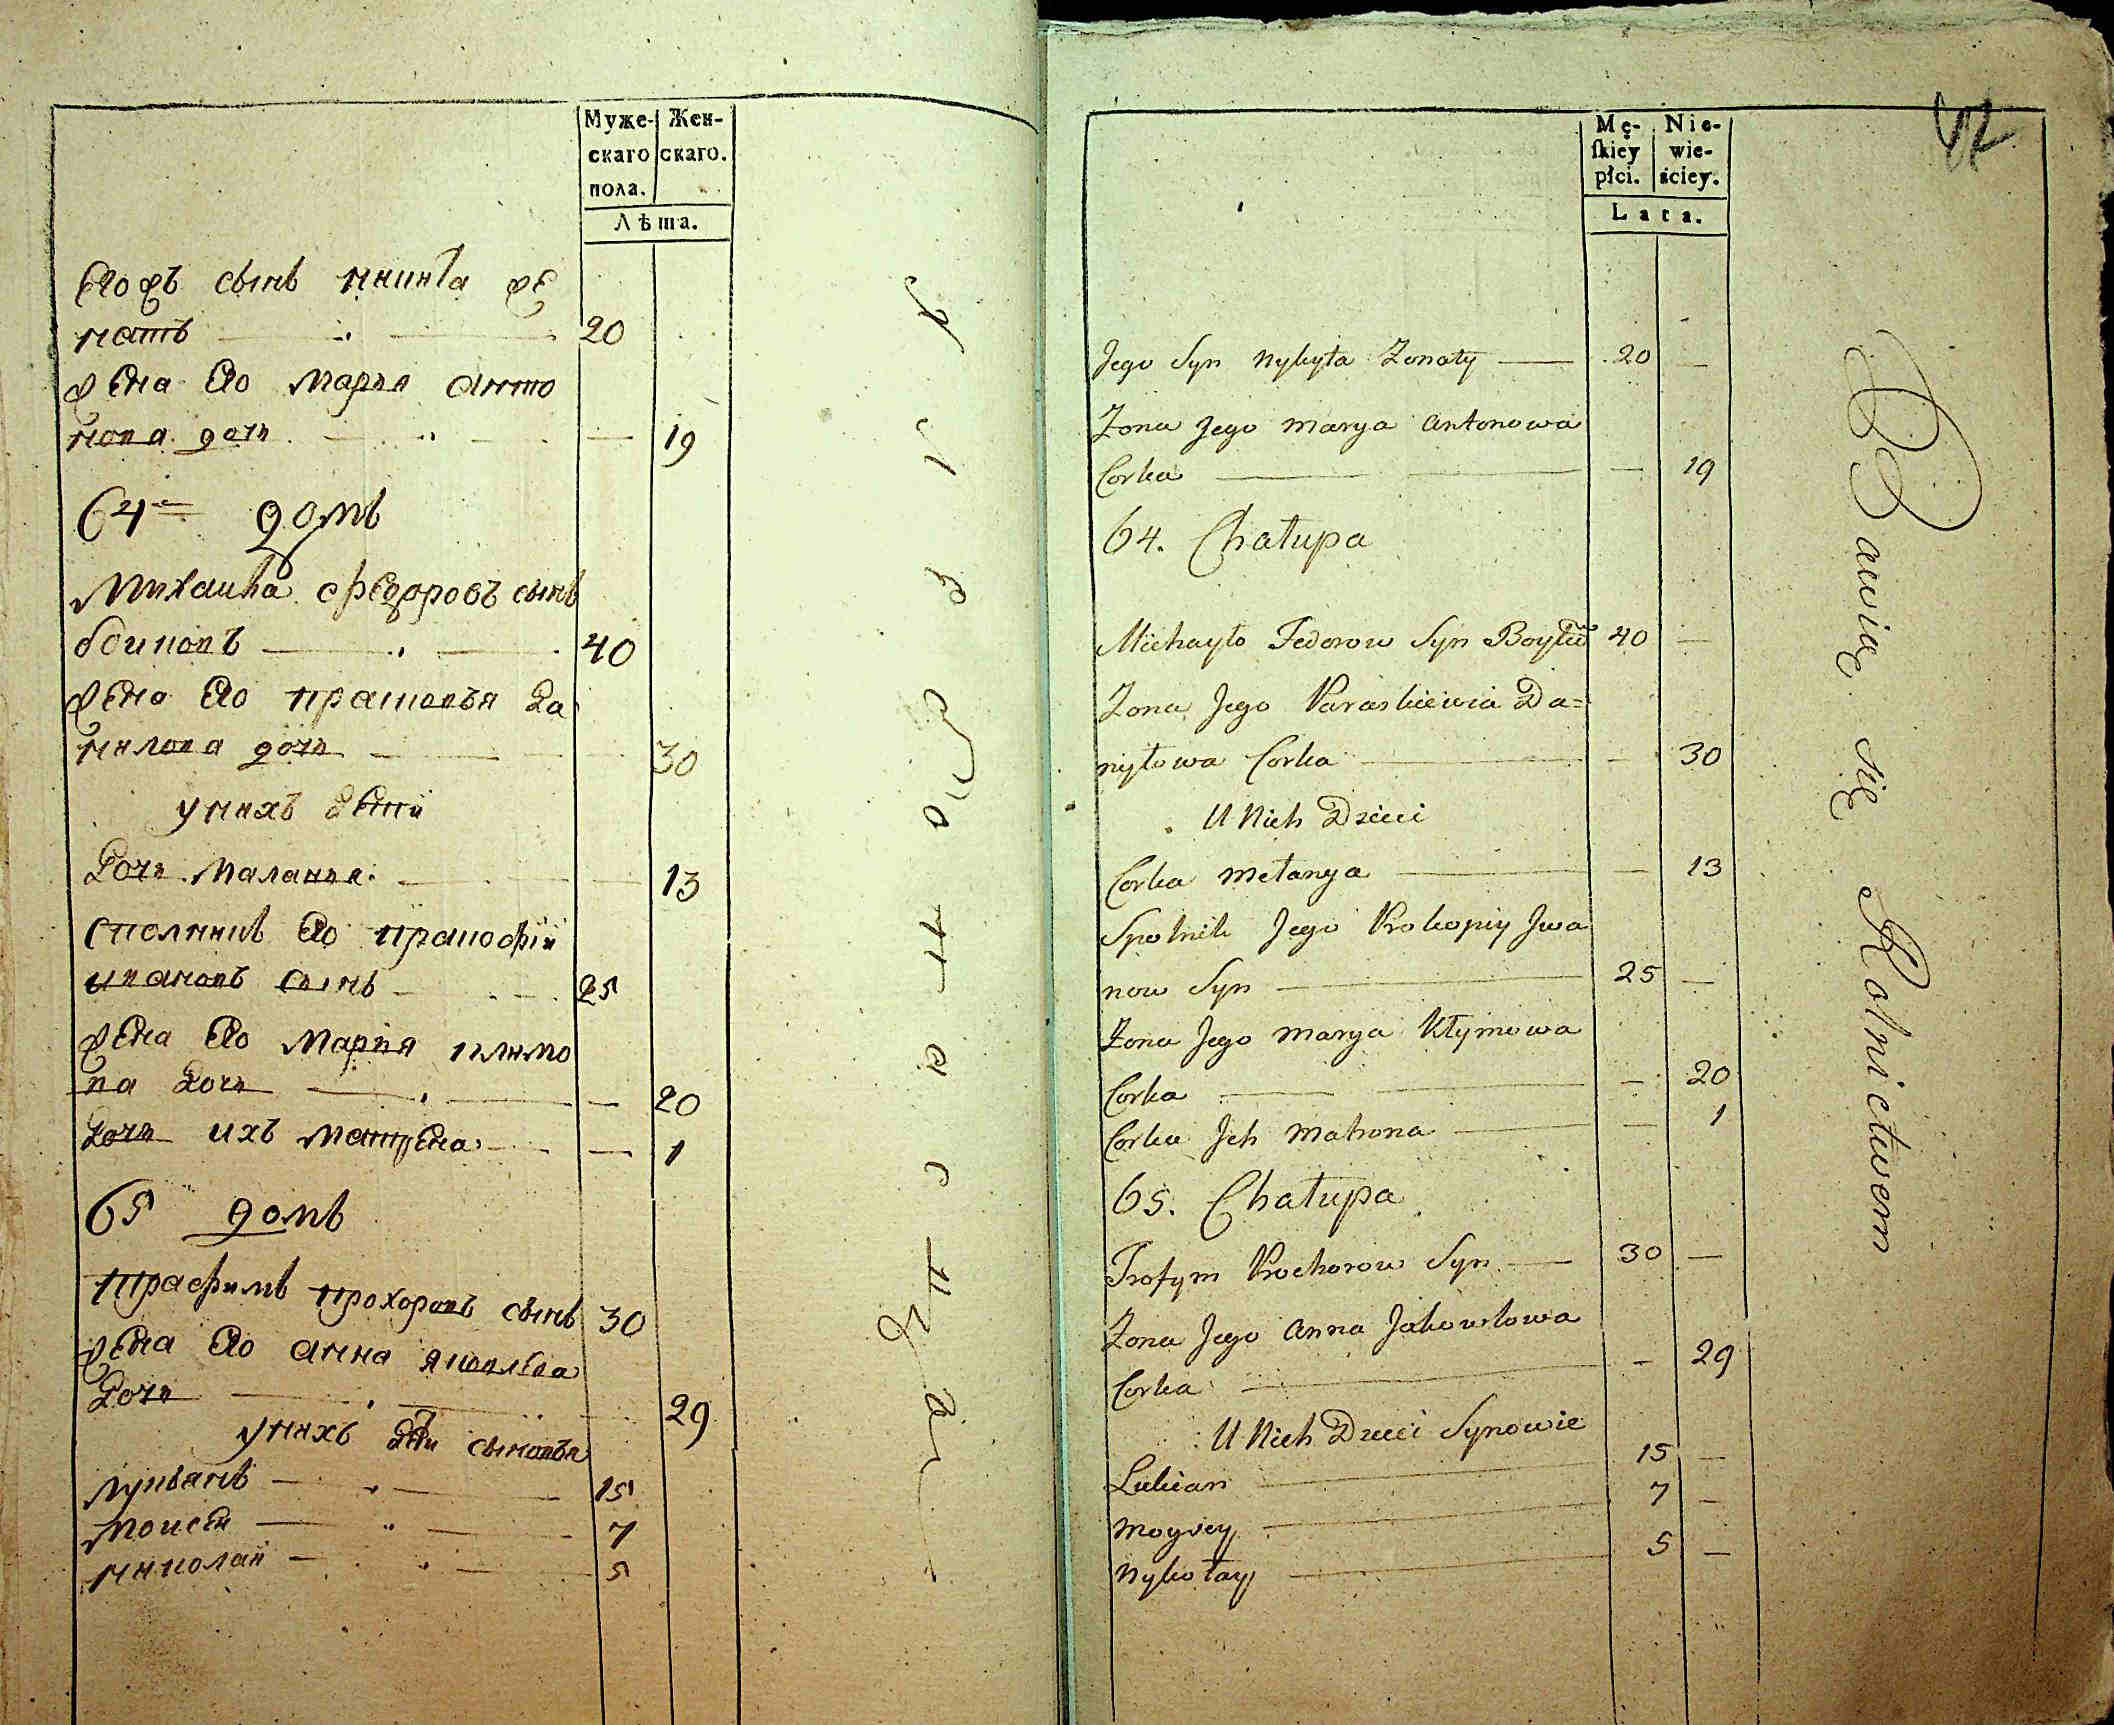 Муже-
скаго
пола.
Жен-
скаго.
Лѣта.
Єгожъ сынъ никита же
натъ 20
жена єго марья анто
нова дочь 19
64 домъ
михаила федоровъ сынъ
бойковъ 40
жена єго прасковья да
нилова дочь 30
у нихъ дети
дочь маланья 13
сполникъ єго прокофій
ивановъ сынъ 25
жена єго марья климо
ва дочь 20
дочь ихъ матрена 1
65 домъ
трафимъ прохоровъ сынъ 30
жена єго анна яковлева
дочь 29
у нихъ дѣти сыновья
лукьянъ 15
моисей 7
николай 5
42
Mę-
skiey
płci.
Nie-
wie-
ściey.
Lata.
Jego Syn Nykyta Zonaty 20 —
Zona Jego Marya Antonowa
Corka — 19
64. Chałupa
Michayło Fedorow Syn 40 —
Zona Jego Paraskiewia Da=
nyłowa Corka — 30
U Nich Dzieci
Corka Mełanya — 13
Spolnik Jego Prokopiy Jwa
now Syn 25 —
Zona Jego Marya Kłymowa
Corka — 20
Corka Jch Matrona — 1
65. Chałupa
Trofym Prochorow Syn 30 —
Zona Jego Anna Jakowlowa
Corka — 29
U Nich Dzieci Synowie
Lukian 15 —
Moysey 7 —
Nykołay 5 —
Bawią się Rolnictwem